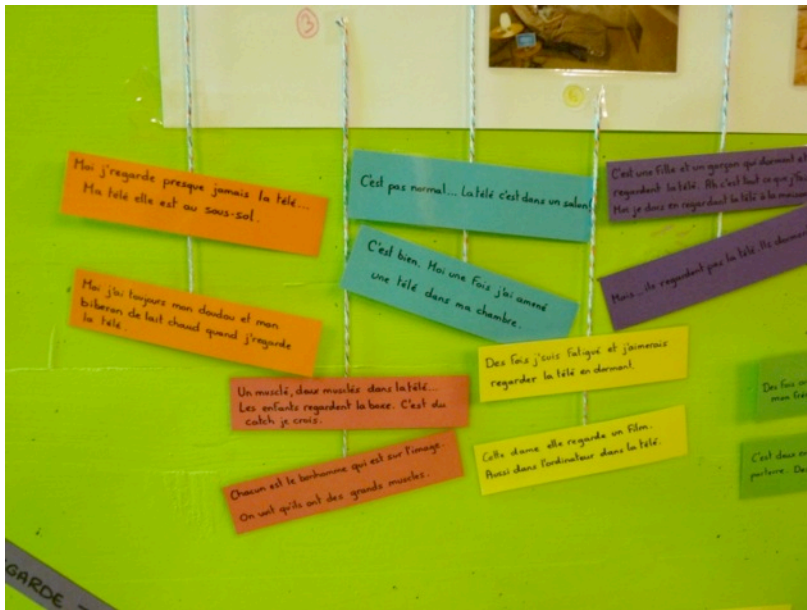 3
Moi j'regarde presque jamais la télé...
Ma télé elle est au sous-sol.
Moi j'ai toujours mon doudou et mon
biberon de lait chaud quand j'regarde
la télé.
Un musclé, deux musclés dans la télé...
Les enfants regardent la boxe. C'est du
catch je crois.
Chacun est le bonhomme qui est sur l'image.
On voit qu'ils ont des grands muscles.
C'est pas normal... La télé c'est dans un salon!
C'est bien. Moi une fois j'ai amené
une télé dans ma chambre.
Des fois j'suis fatigué et j'aimerais
regarder la télé en dormant.
Cette dame elle regarde un film.
Aussi dans l'ordinateur dans la télé.
C'est une fille et un garçon qui dorment et
regardent la télé. Ah c'est tout ce que j'fais
Moi je dors en regardant la télé à la maison
Mais... ils regardent pas la télé. Ils dorment
Des fois
mon
C'est deux
GARDE